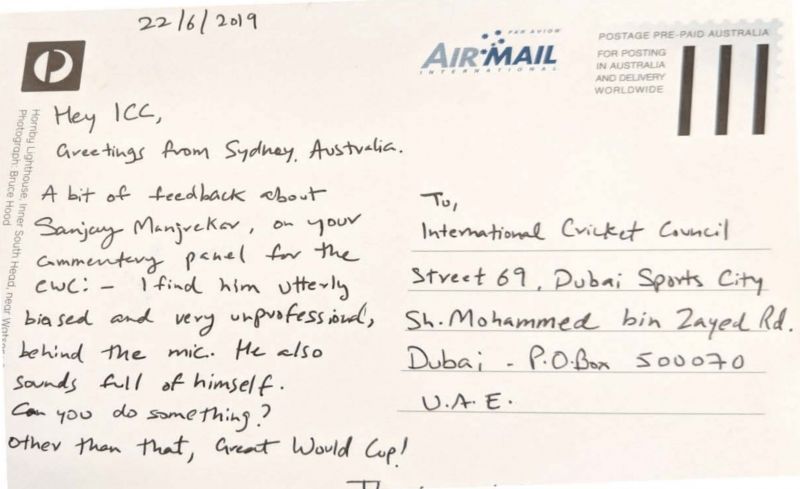 22/6/2019
PAR AVION
AIR MAIL
INTERNATIONAL
POSTAGE PRE-PAID AUSTRALIA
FOR POSTING
IN AUSTRALIA
AND DELIVERY
WORLDWIDE
Hey ICC,
Greetings from Sydney, Australia.
A bit of feedback about
Sanjay Manjrekar, on your
commentary panel for the
CWC: - I find him utterly
biased and very unprofessional,
behind the mic. He also
sounds full of himself.
Can you do something?
Other than that, Great Would Cup!
To,
International Cricket Council
Street 69, Dubai Sports City
Sh. Mohammed bin Zayed Rd.
Dubai - P.O.Box 500070
U.A.E.
Hornby Lighthouse, Inner South Head, near
Photograph: Bruce Hood